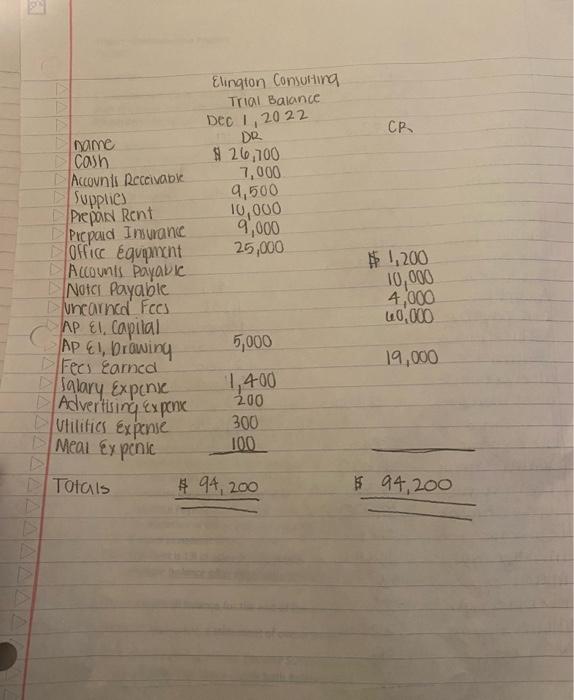 Elington Consulting
Trial Balance
Dec 1, 2022
name DR CR
Cash $ 26,700
Accounts Receivable 7,000
Supplies 9,500
Prepaid Rent 10,000
Prepaid Insurance 9,000
Office Equipment 25,000
Accounts Payable $ 1,200
Notes Payable 10,000
Unearned Fees 4,000
AP El, Capital 60,000
AP El, Drawing 5,000
Fees Earned 19,000
Salary Expense 1,400
Advertising Expense 200
Utilities Expense 300
Meal Expense 100
Totals $ 94,200 $ 94,200